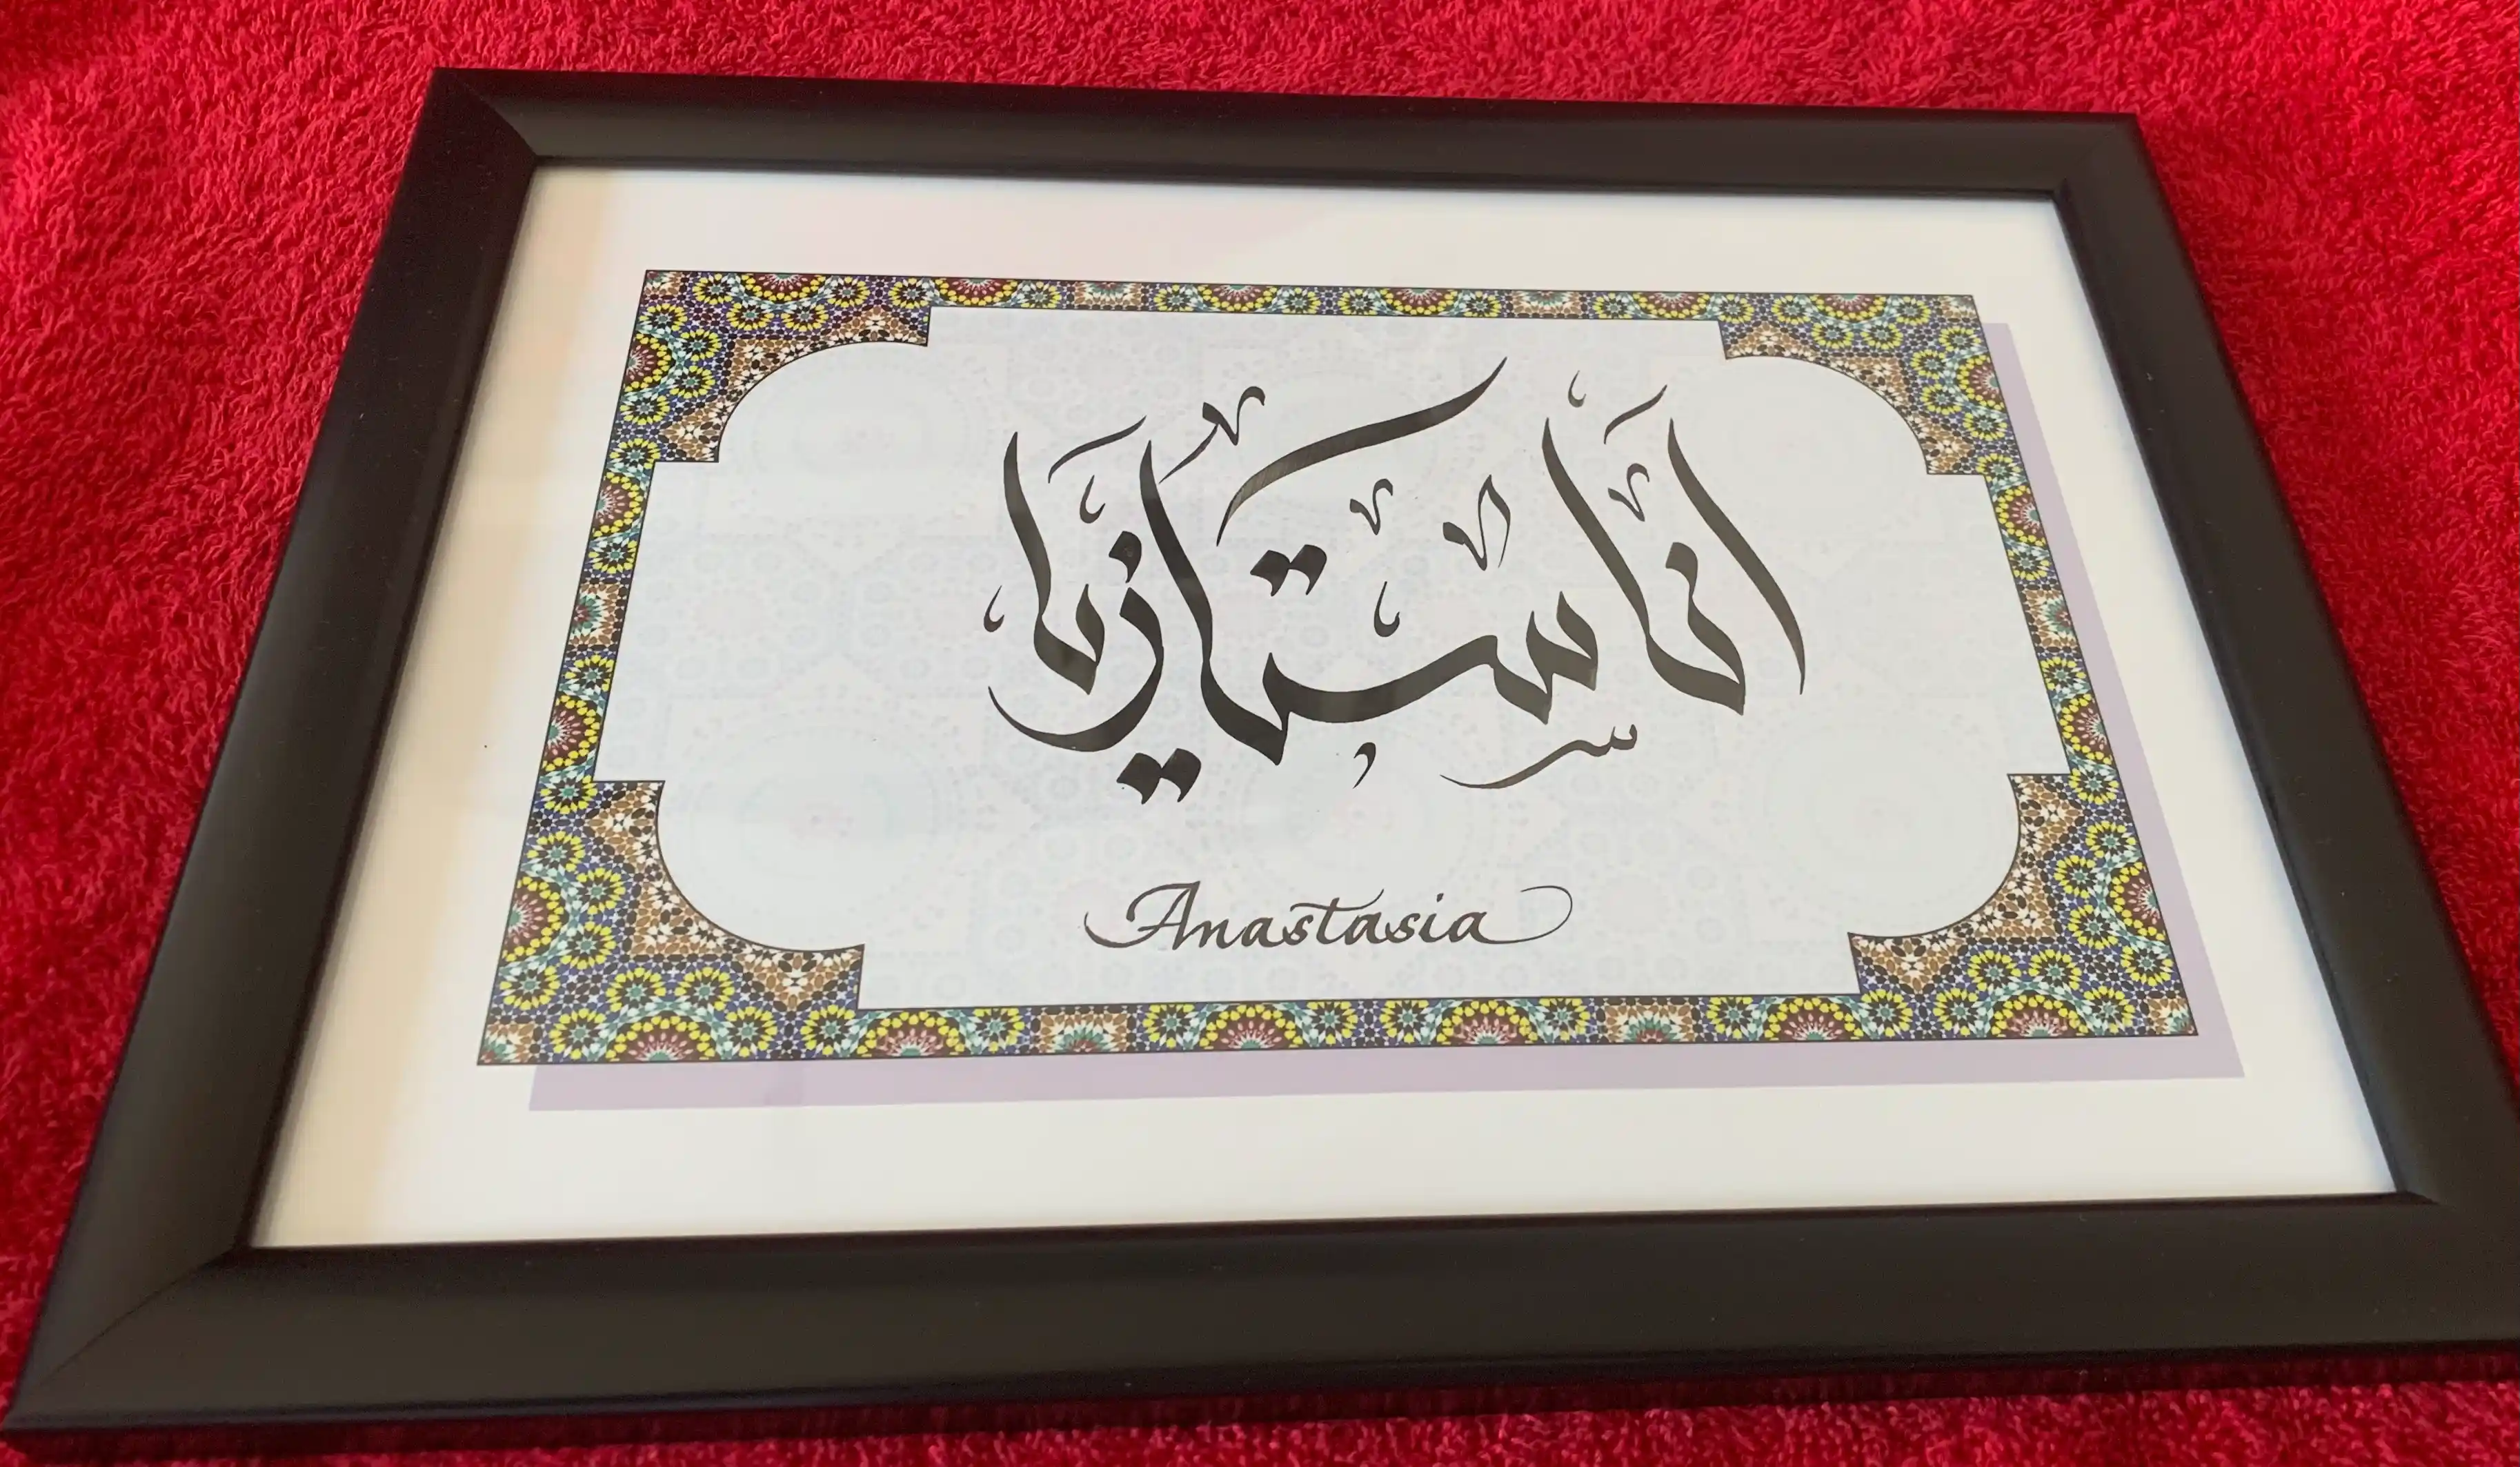 اناستازيا
Anastasia